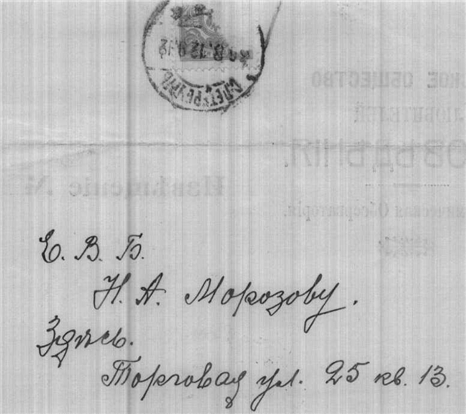 С.ПЕТЕРБУРГЪ
КОЕ ОБЩЕСТВО
ЛЮБИТЕЛЕЙ
ОВѢДѢНІЯ.
Извѣщеніе №
ическая Обсерваторія.
Е. В. Б.
Н. А. Морозову.
Здѣсь.
Торговая ул. 25 кв. 13.